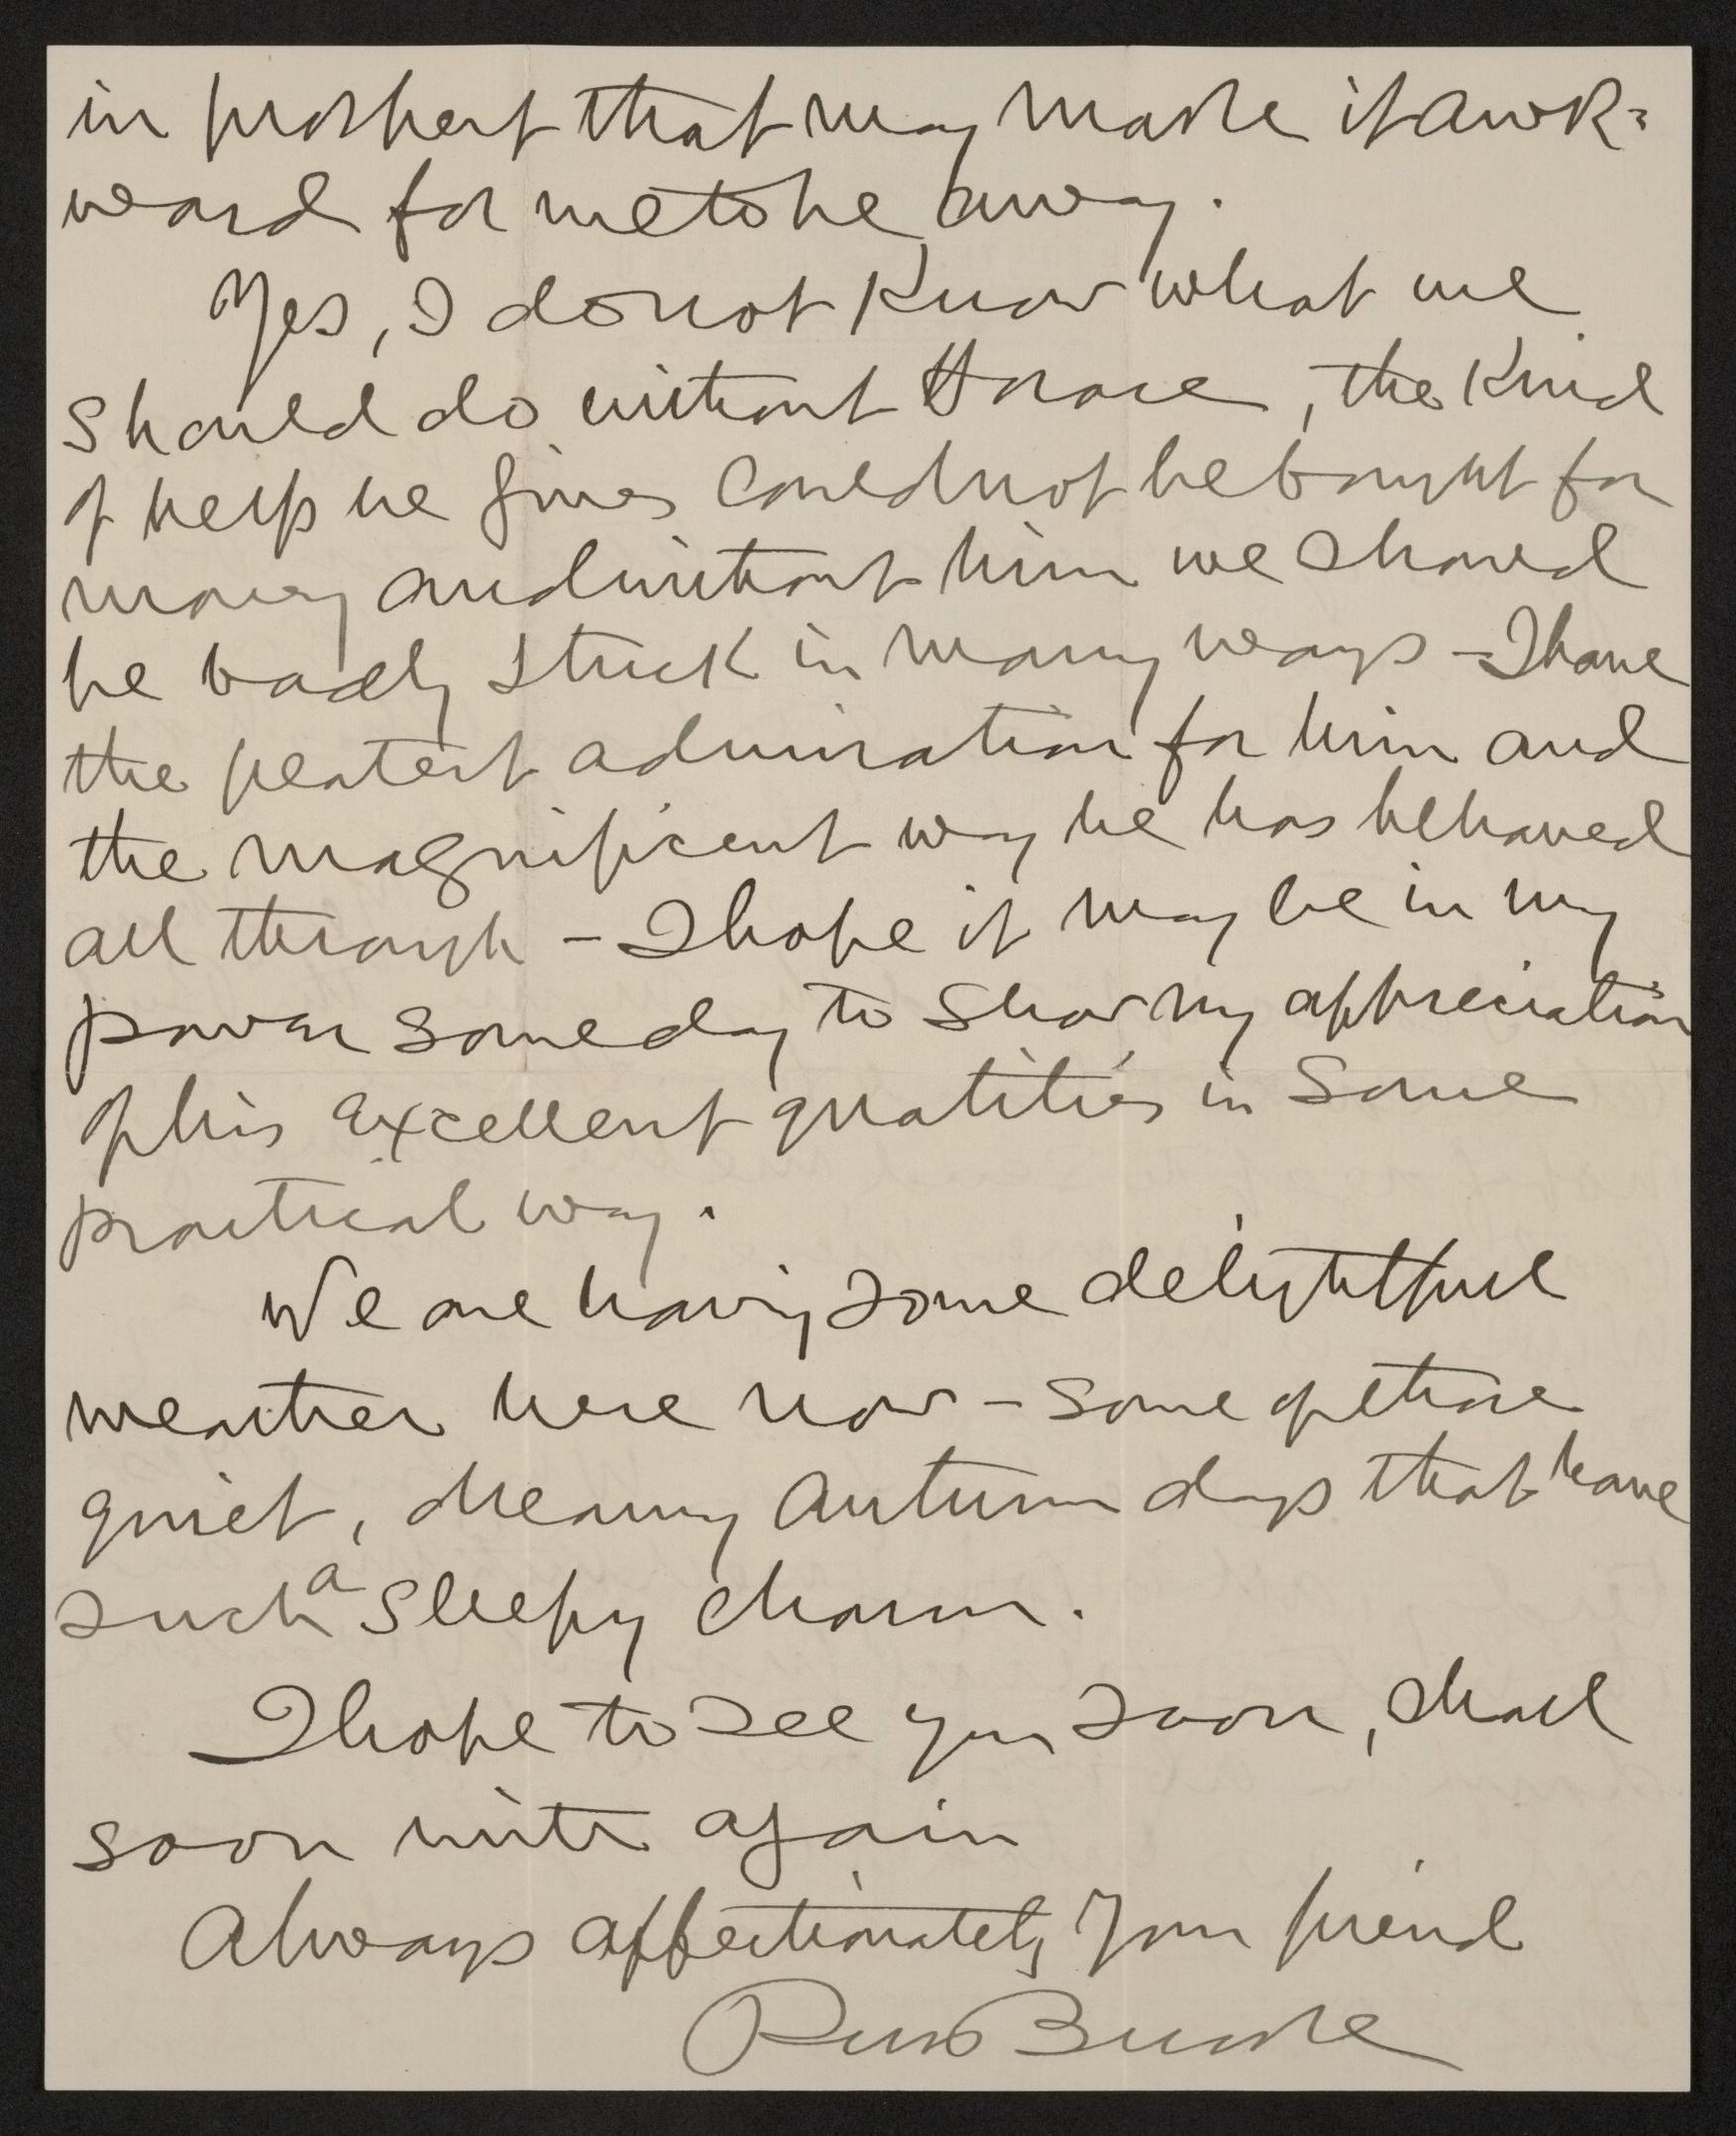 in prospect that may make it awk=
ward for me to be away.
Yes, I do not know what we
should do without Horace, the kind
of help he gives could not be bought for
money and without him we should
be badly stuck in many ways – I have
the greatest admiration for him and
the magnificent way he has behaved
all through – I hope it may be in my
power some day to show my appreciation
of his excellent qualities in some
practical way.
We are having some delightful
weather here now – some of those
quiet, dreamy Autumn days that have
such a sleepy charm.
I hope to see you soon, shall
soon write again
Always affectionately your friend
Russ Burke